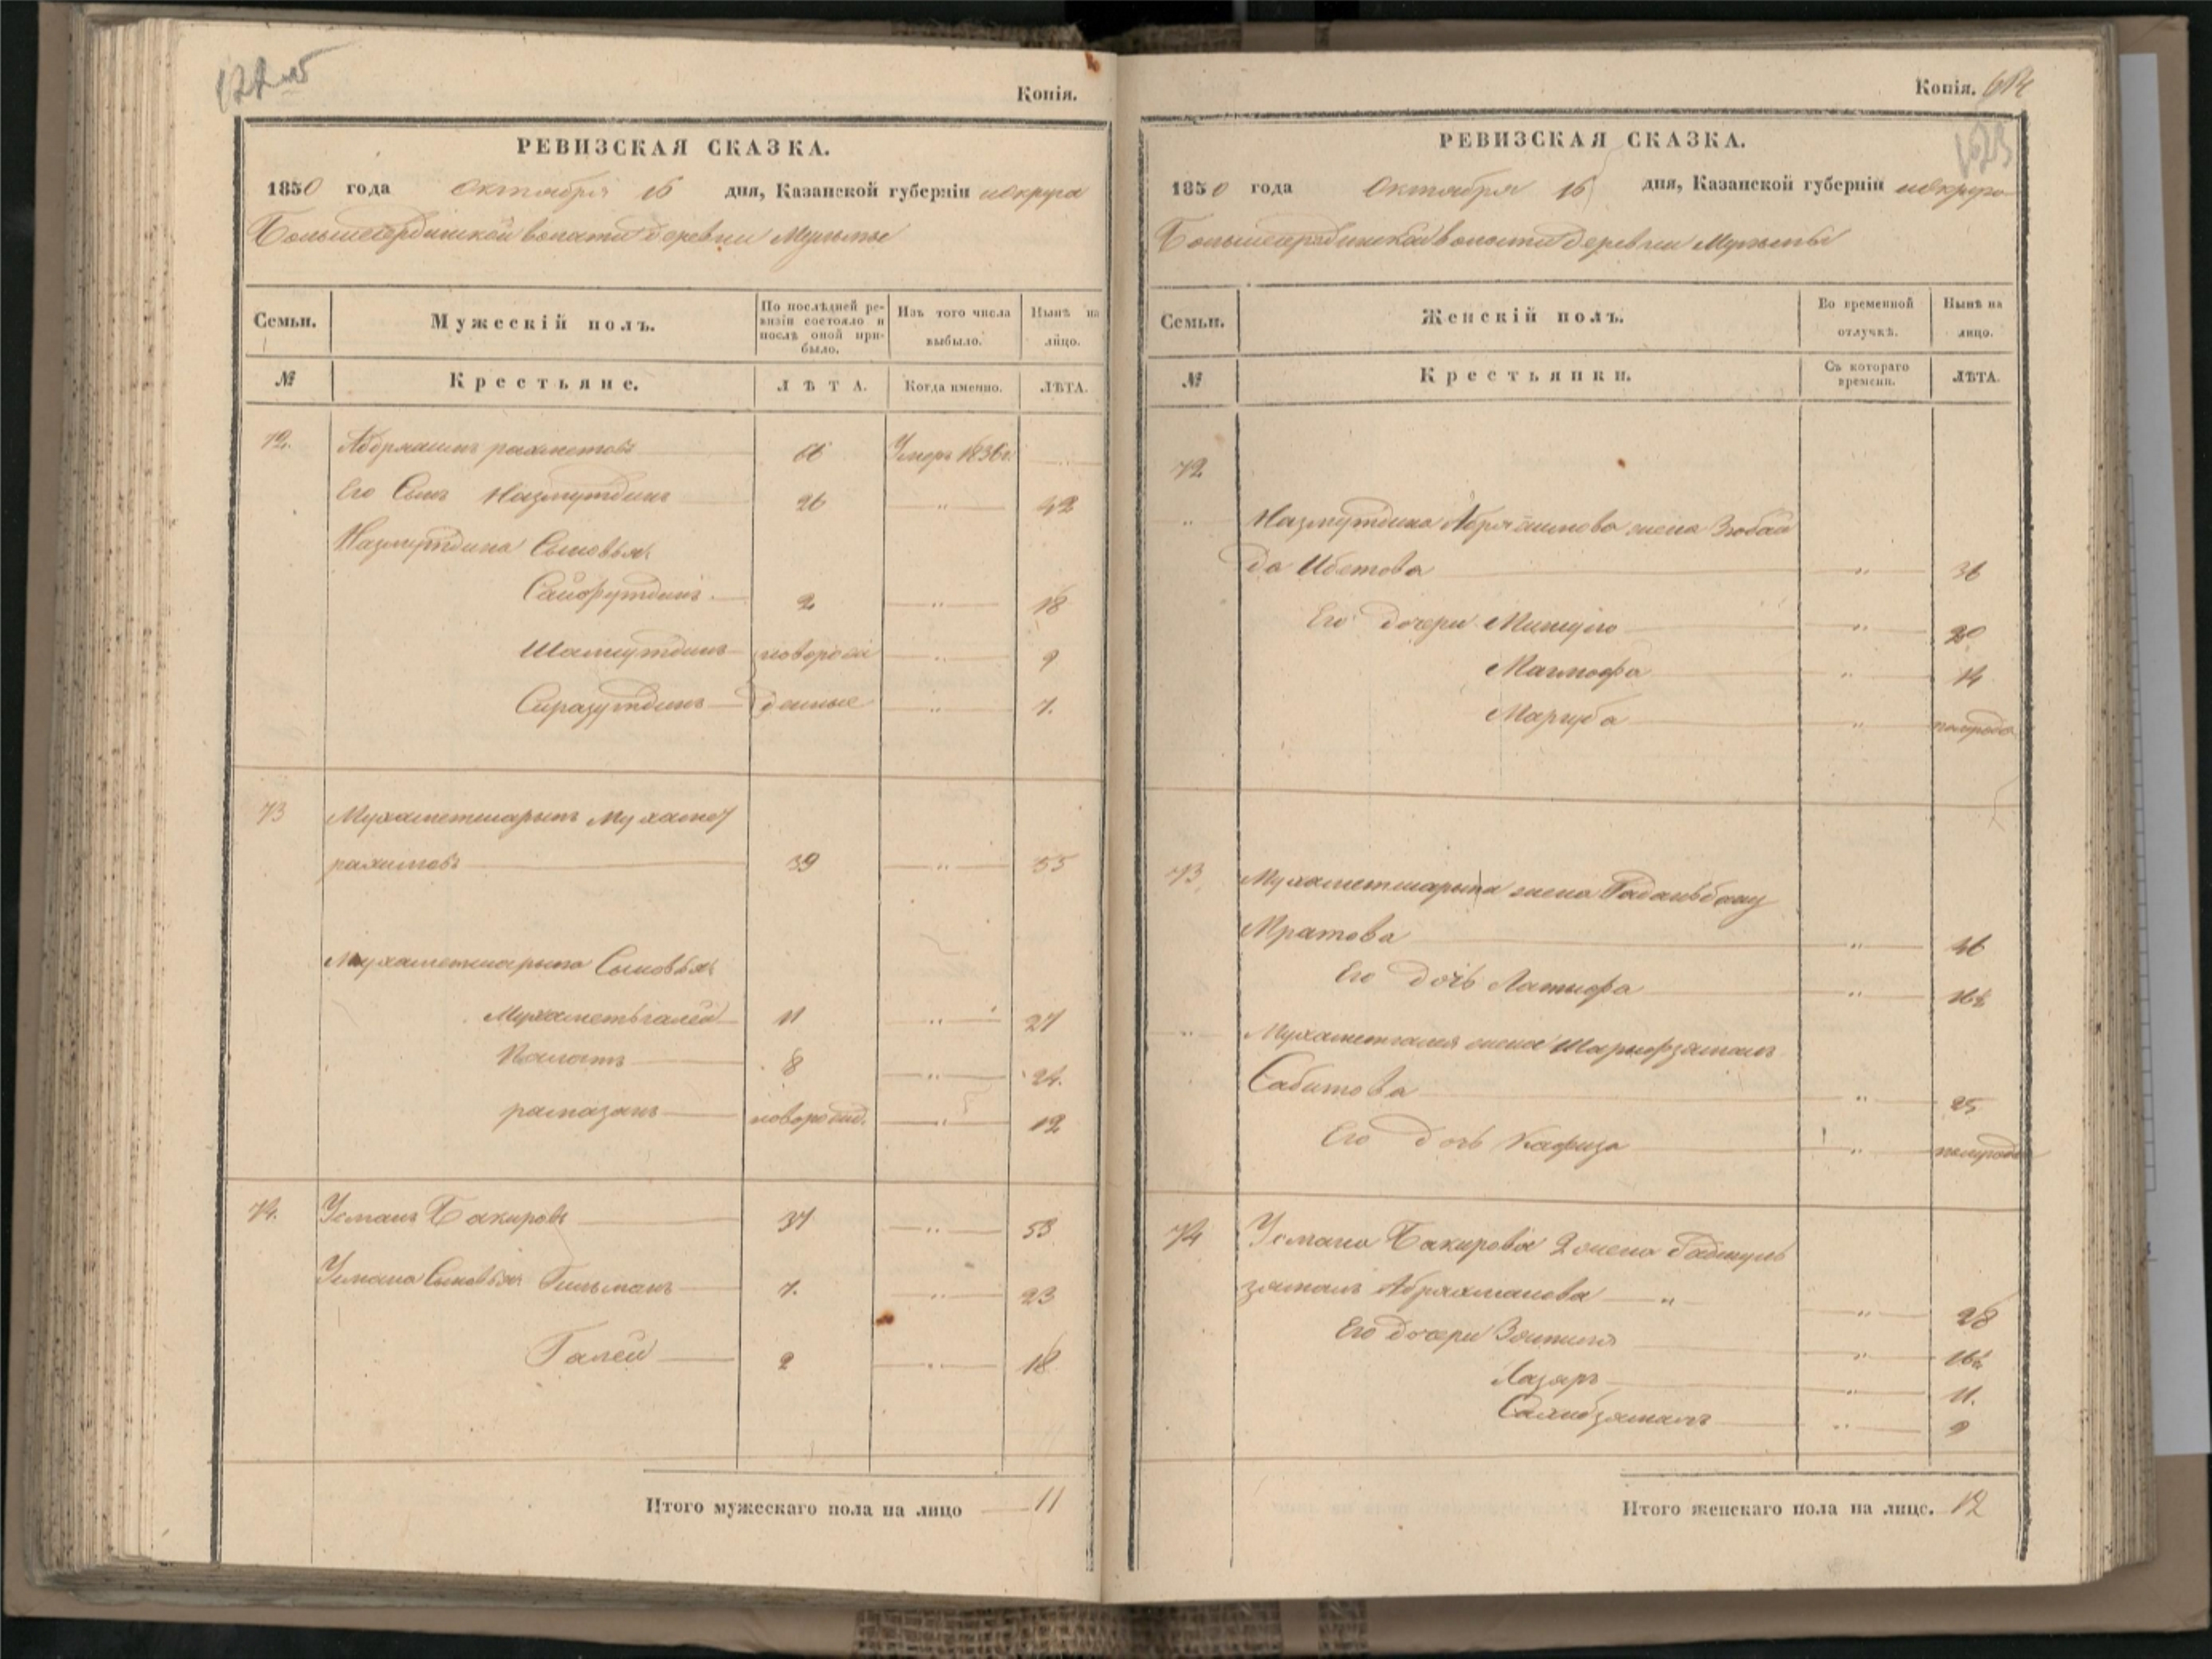 122 об
Копія.
РЕВИЗСКАЯ СКАЗКА.
1850 года Октября 16 дня, Казанской губерніи и округа
волости деревни Мульмы
Семьи. Мужескій полъ. По послѣдней ревизіи состояло и послѣ оной прибыло. Изъ того числа выбыло. Нынѣ на лицо.
№ Крестьяне. ЛѢТА. Когда именно. ЛѢТА.
72. Абдряшитъ рахметовъ 66 Умеръ 1836г.
Его Сынъ Назмутдинъ 26 " 42
Назмутдина Сыновья
Сайфутдинъ 2 " 18
Шамсутдинъ новорож 9
Сиразутдинъ денные " 7.
73 Мухаметшарыпъ Мухамет
рахимовъ 39 " 55
Мухаметшарыпа Сыновья
Мухаметьгалей 11 " 27
8 " 24.
рамазанъ новорожд. " 12
74. Усманъ Бакировъ 37 " 53
Усмана Сыновья Гильманъ 7. " 23
Галей 2 " 18
Итого мужескаго пола на лицо 11
Копія.
123
РЕВИЗСКАЯ СКАЗКА.
1850 года Октября 16 дня, Казанской губерніи и округа
волости деревни Мульмы
Семьи. Женскій полъ. Во временной отлучкѣ. Нынѣ на лицо.
№ Крестьянки. Съ котораго времени. ЛѢТА.
72
" Назмутдина Абряшитова жена Зюбай
да " 36
Его дочери " 20
" 14
Маргуба " полгода
73 Мухаметшарыпа жена
Мратова " 46
Его дочь Латыфа " 16½
" Мухаметгалея жена Шарифзямалъ
Сабитова " 25
Его дочь " полгода
74 Усмана Бакирова 2 жена
зямалъ Абряхманова " " 28
Его дочери " 16½
" 11.
Сахибзямалъ " 9
Итого женскаго пола на лице. 12